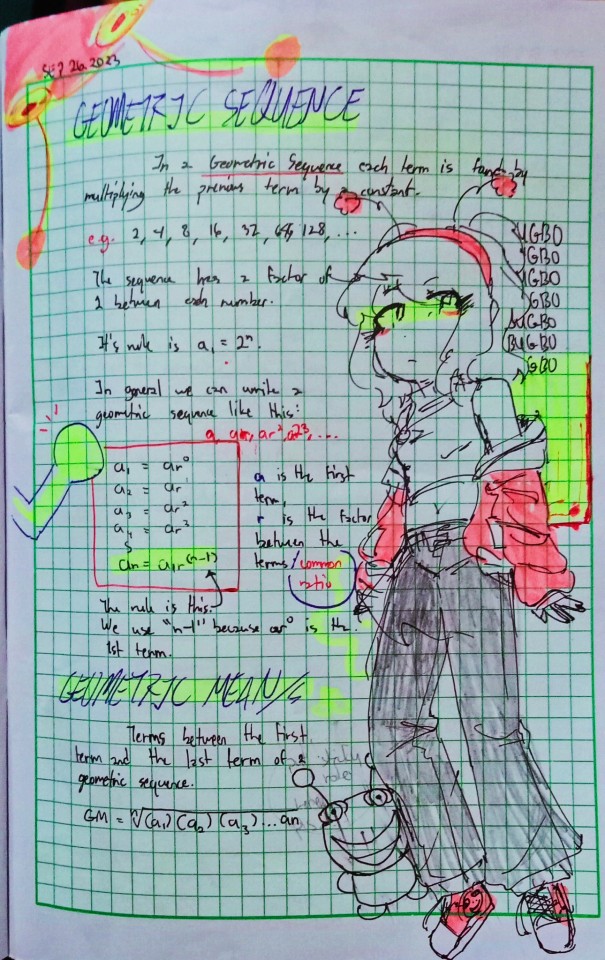 SEP 26. 2023
GEOMETRIC SEQUENCE
In a Geometric Sequence each term is found by
multiplying the previous term by a constant.
e.g. 2, 4, 8, 16, 32, 64, 128, ...
The sequence has a factor of
2 between each number.
It's rule is a₁ = 2ⁿ.
In general we can write a
geometric sequence like this:
a, ar, ar², ar3, ...
a₁ = ar⁰
a₂ = ar
a₃ = ar²
a₄ = ar³
an = a₁r⁽ⁿ⁻¹⁾
a is the first
term,
r is the factor
between the
terms / common
ratio
The rule is this.
We use "n-1" because ar⁰ is the
1st term.
GEOMETRIC MEAN/S
Terms between the first
term and the last term of a
geometric sequence.
GM = ⁿ√(a₁)(a₂)(a₃)...an
UGBO
GBO
UGBO
GBO
BUGBO
BUGBO
GBO